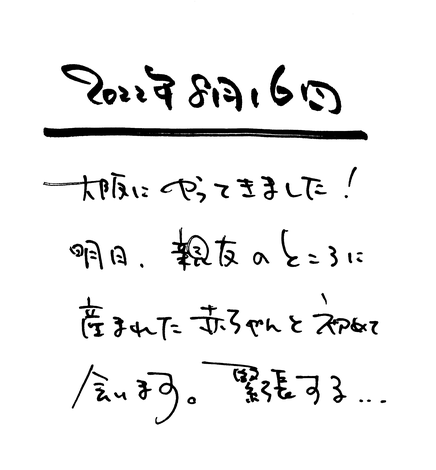 2022年8月16日
大阪にやってきました！
明日、親友のところに
産まれた赤ちゃんと初めて
会います。緊張する...